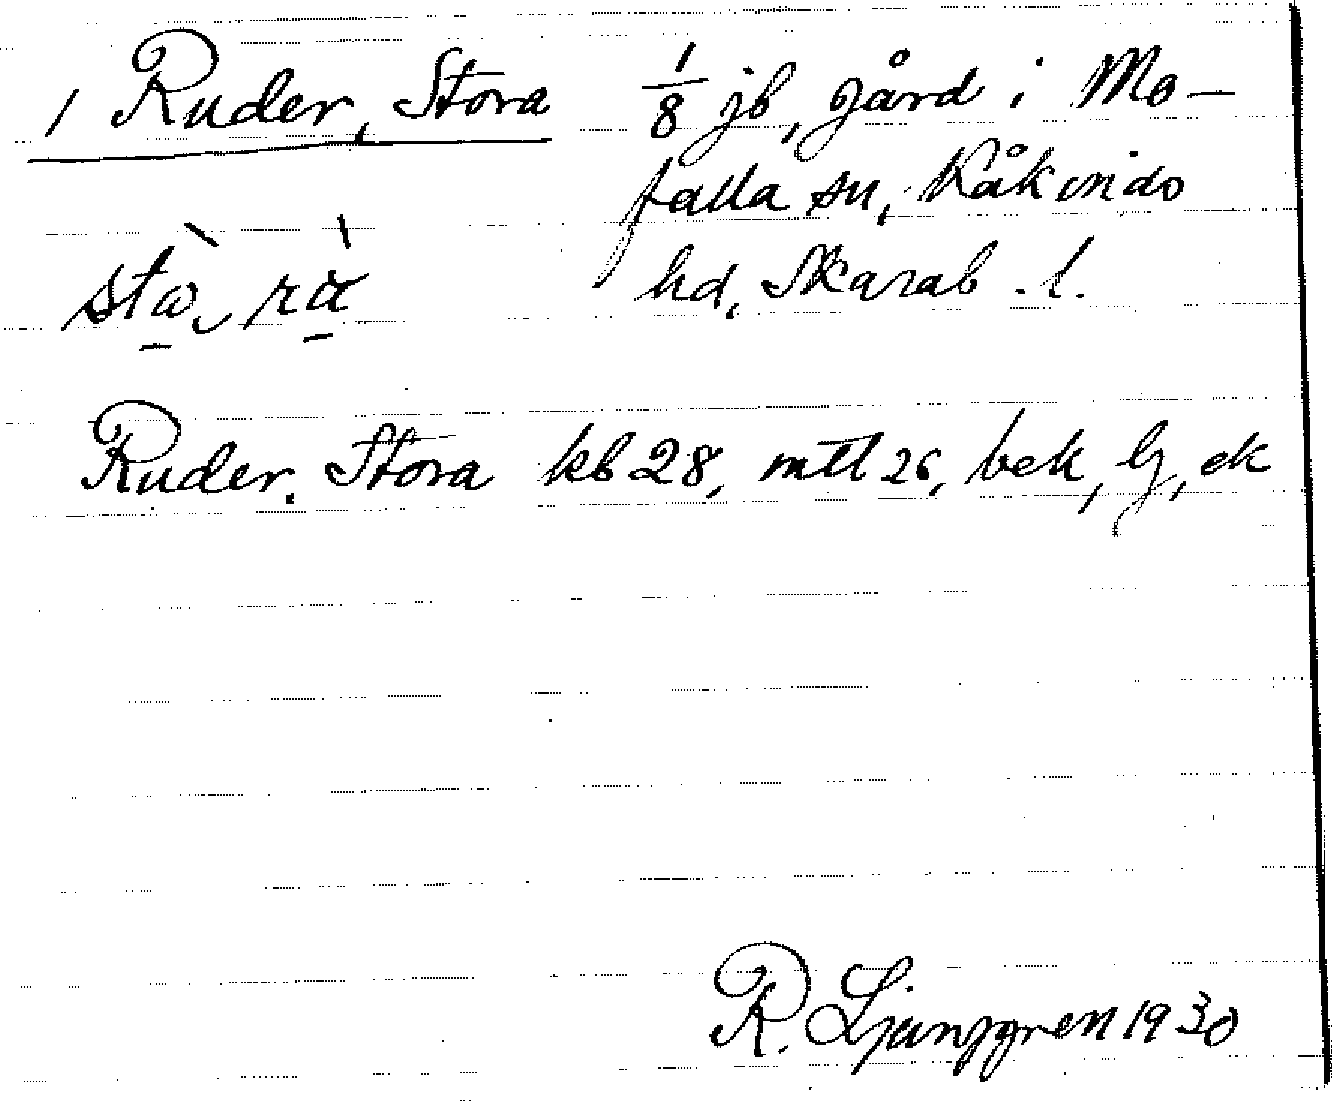 1 Ruder, Stora 1/8 jb, gård i Mo-
falla sn, Kåkinds
hd, Skarab. l.
Ruder. Stora kb 28, mtl 26, bek, lj, ek
R. Ljunggren 1930